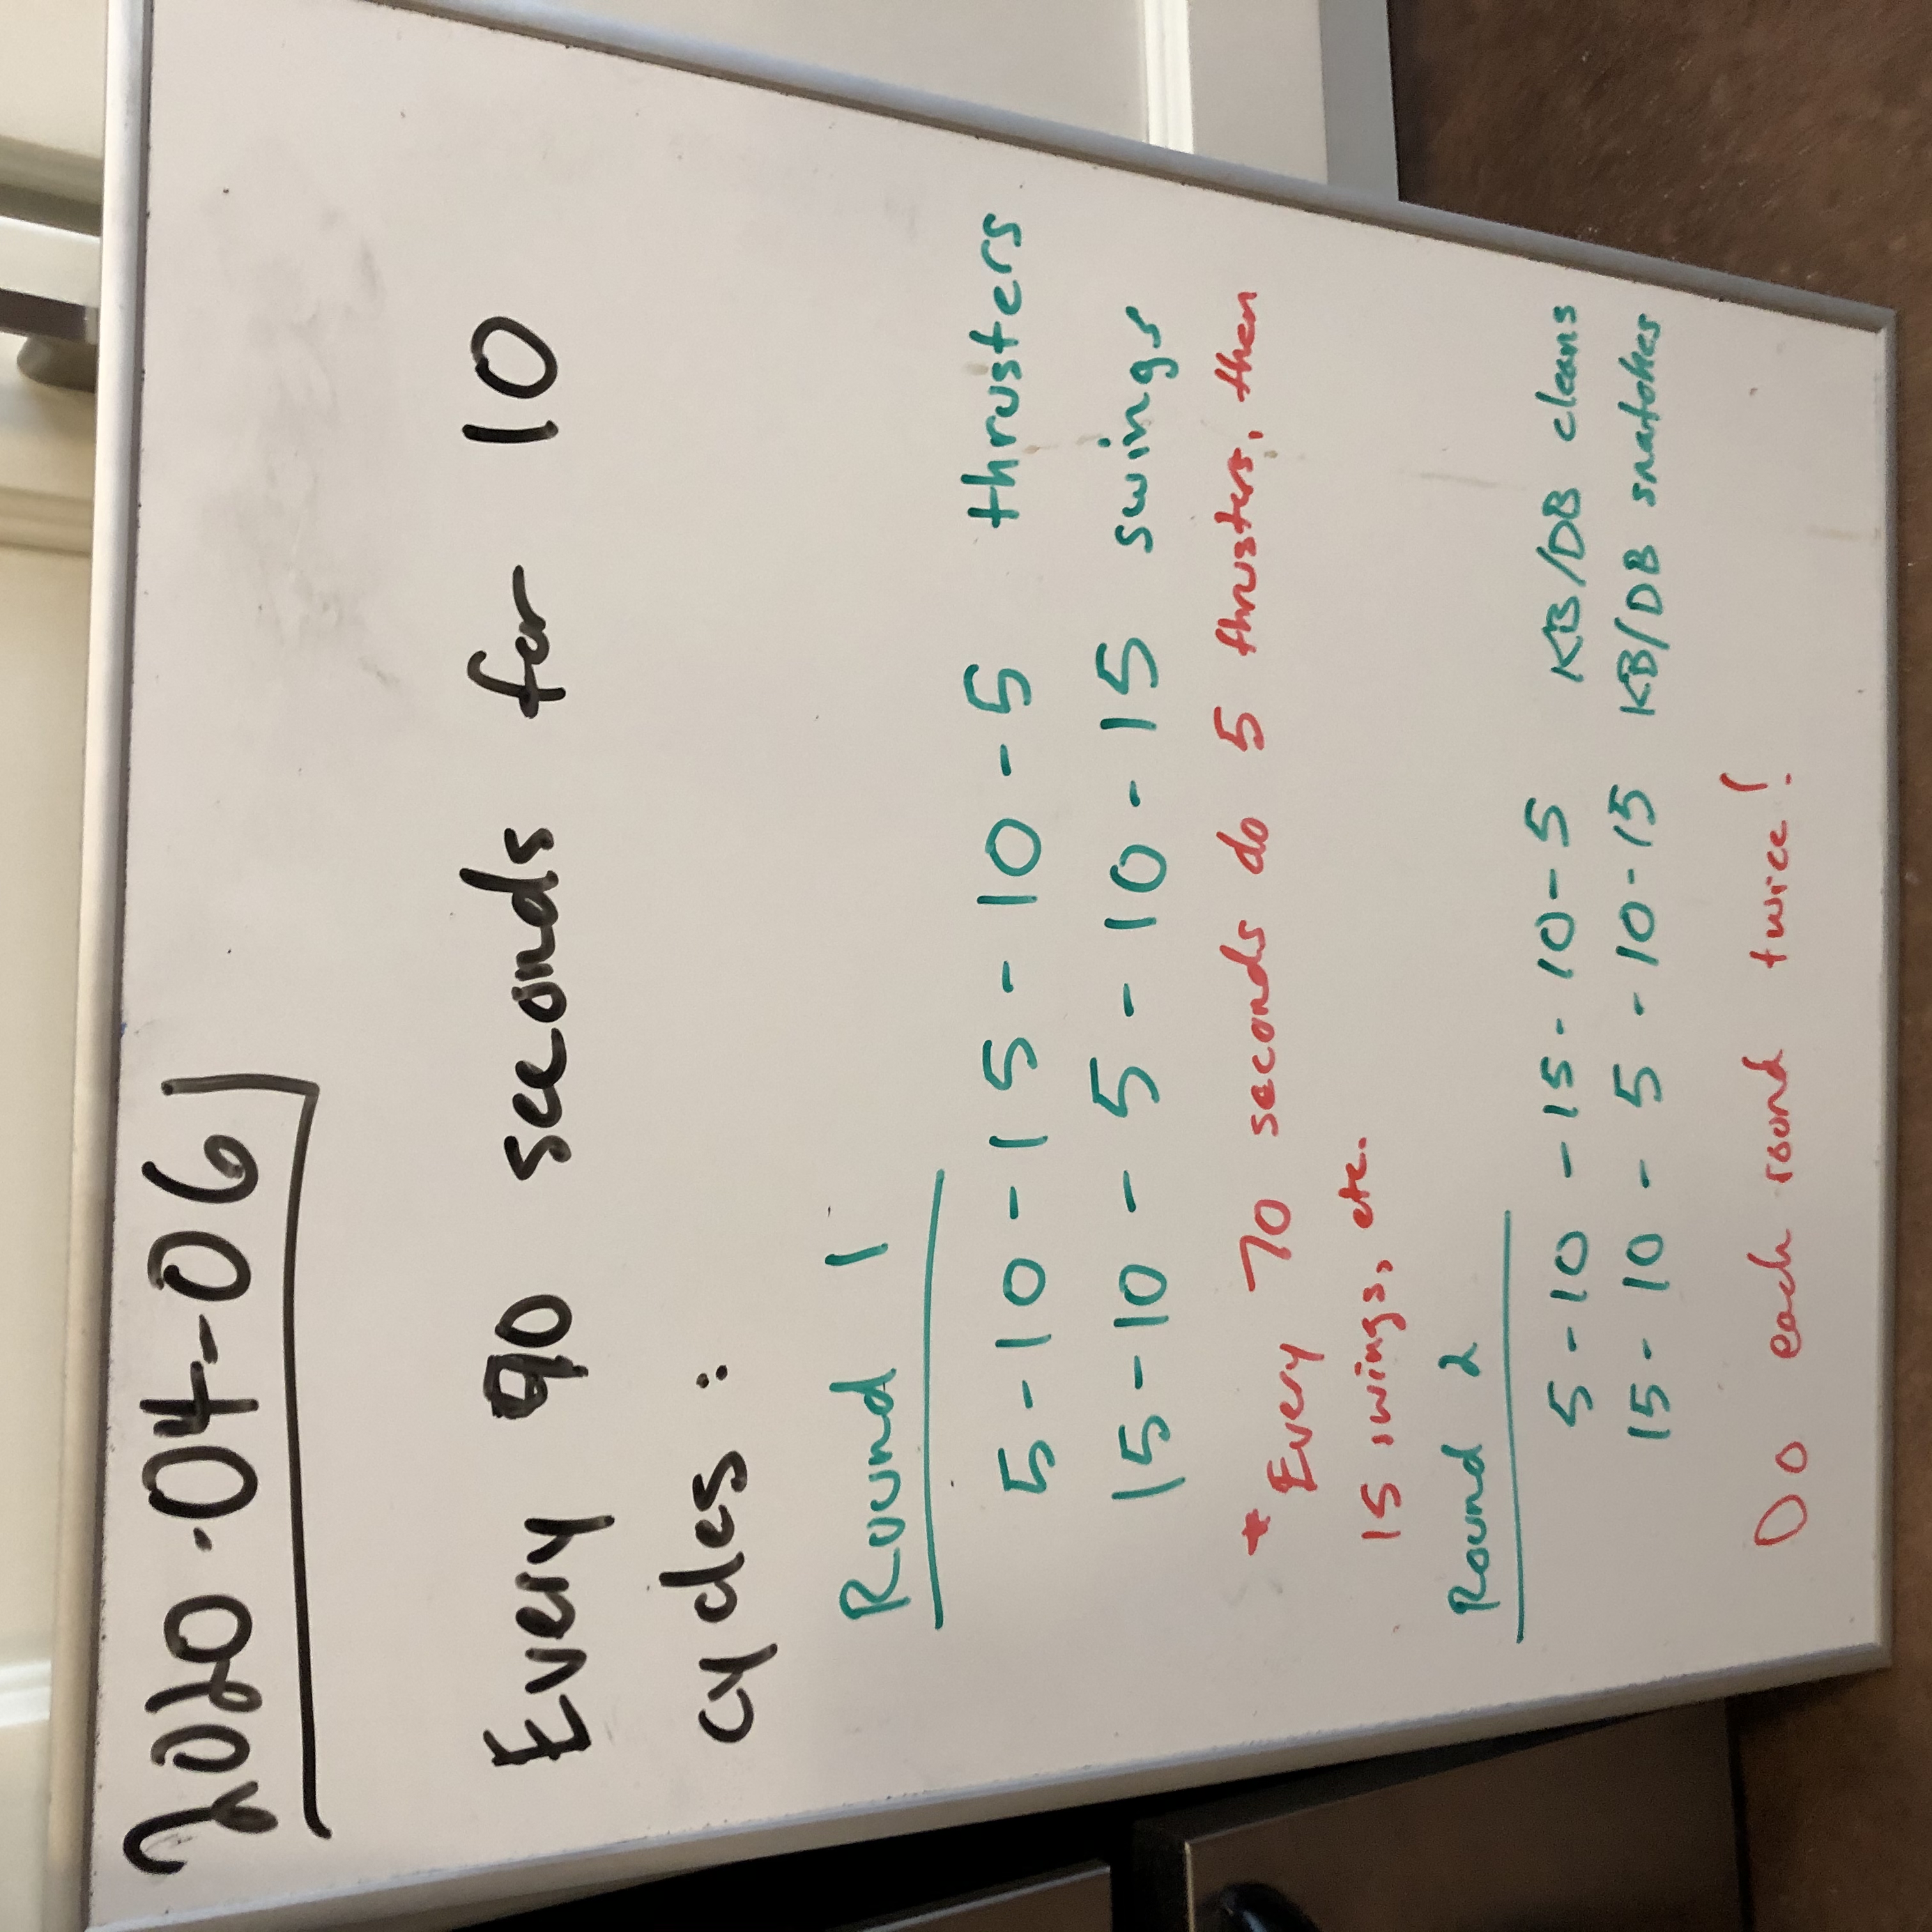 2020-04-06
Every 90 seconds for 10
cycles :
Round 1
5-10-15-10-5 thrusters
15-10-5-10-15 swings
*Every 70 seconds do 5 thrusters, then
15 swings, etc.
Round 2
5-10-15-10-5 KB/DB cleans
15-10-5-10-15 KB/DB snatches
Do each round twice!